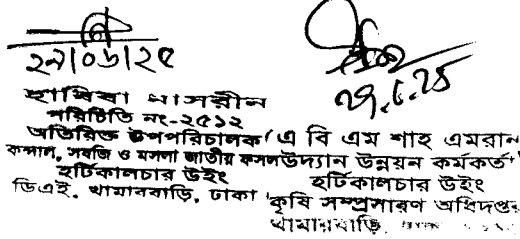 ২৯/০৬/২৫
হাবিবা নাসরীন
পরিচিতি নং-২৫১২
অতিরিক্ত উপপরিচালক
কন্দাল, সবজি ও মসলা জাতীয় ফসল
হর্টিকালচার উইং
ডিএই, খামারবাড়ি, ঢাকা
29.6.25
এ বি এম শাহ এমরান
উদ্যান উন্নয়ন কর্মকর্তা
হর্টিকালচার উইং
কৃষি সম্প্রসারণ অধিদপ্তর
খামারবাড়ি,